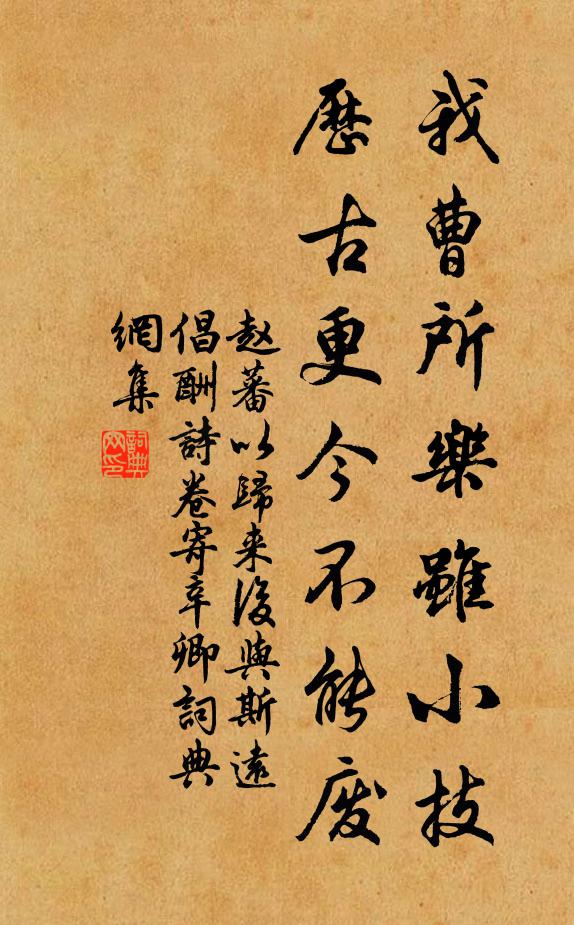 我曹所樂雖小技
歷古更今不能廢
赵蕃以歸来後與斯遠
倡酬詩卷寄辛卿詞典
網集
詞典
网印